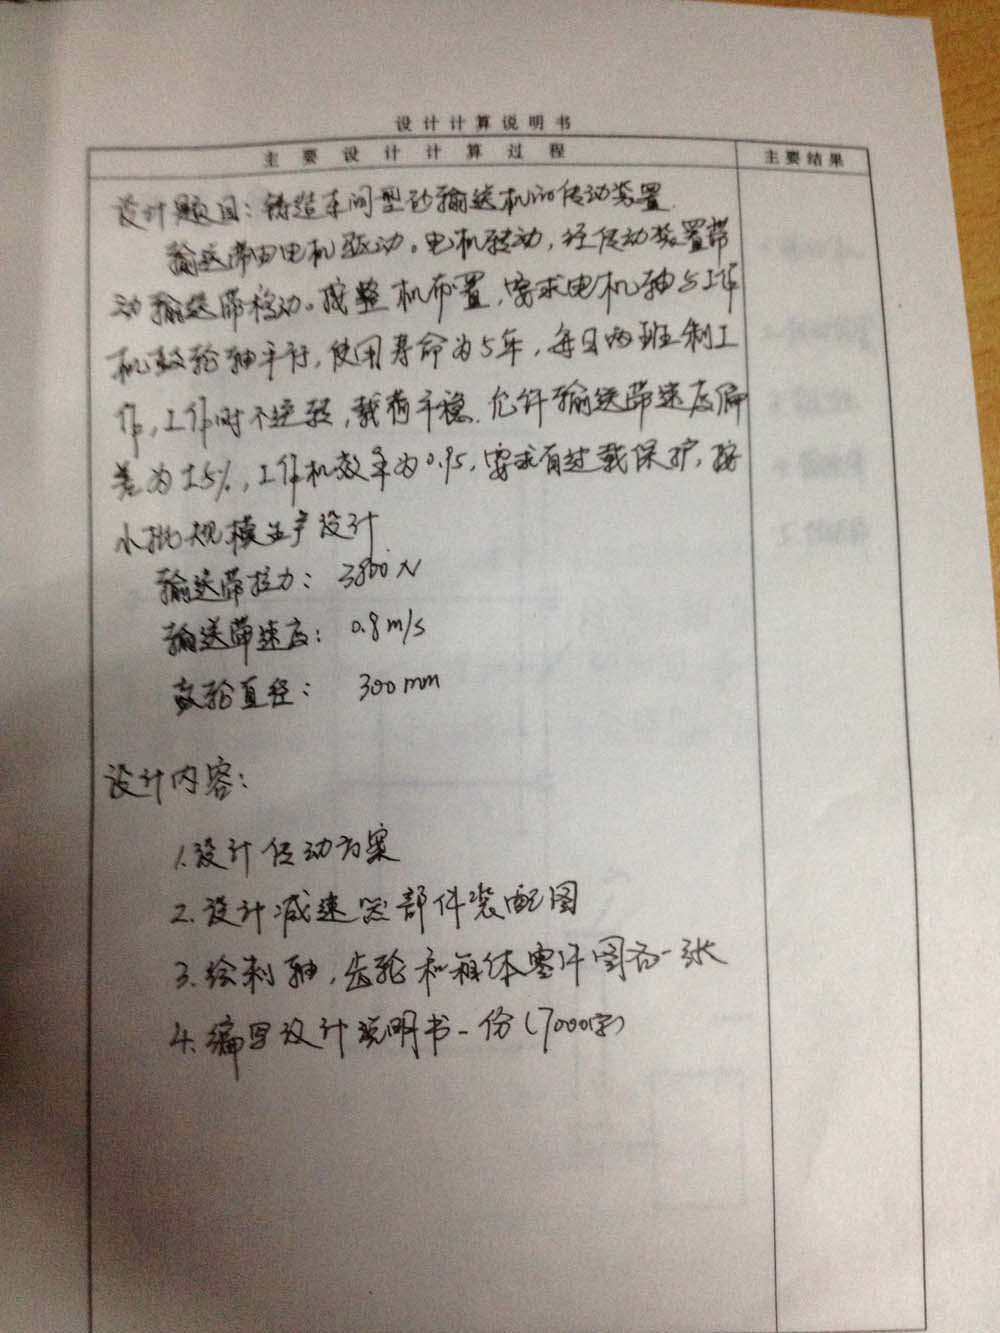 设计计算说明书
主要设计计算过程 主要结果
设计题目：铸造车间型砂输送机的传动装置.
输送带由电机驱动。电机转动，经传动装置带
动输送带移动。按整机布置，要求电机轴与工作
机鼓轮轴平行，使用寿命为5年，每日两班制工
作，工作时不逆转，载荷平稳.允许输送带速度偏
差为±5%，工作机效率为0.95，要求有过载保护，按
小批规模生产设计
输送带拉力： 3800N
输送带速度： 0.8m/s
鼓轮直径： 300mm
设计内容：
1.设计传动方案
2.设计减速器部件装配图
3.绘制轴，齿轮和箱体零件图各一张
4.编写设计说明书一份（7000字）